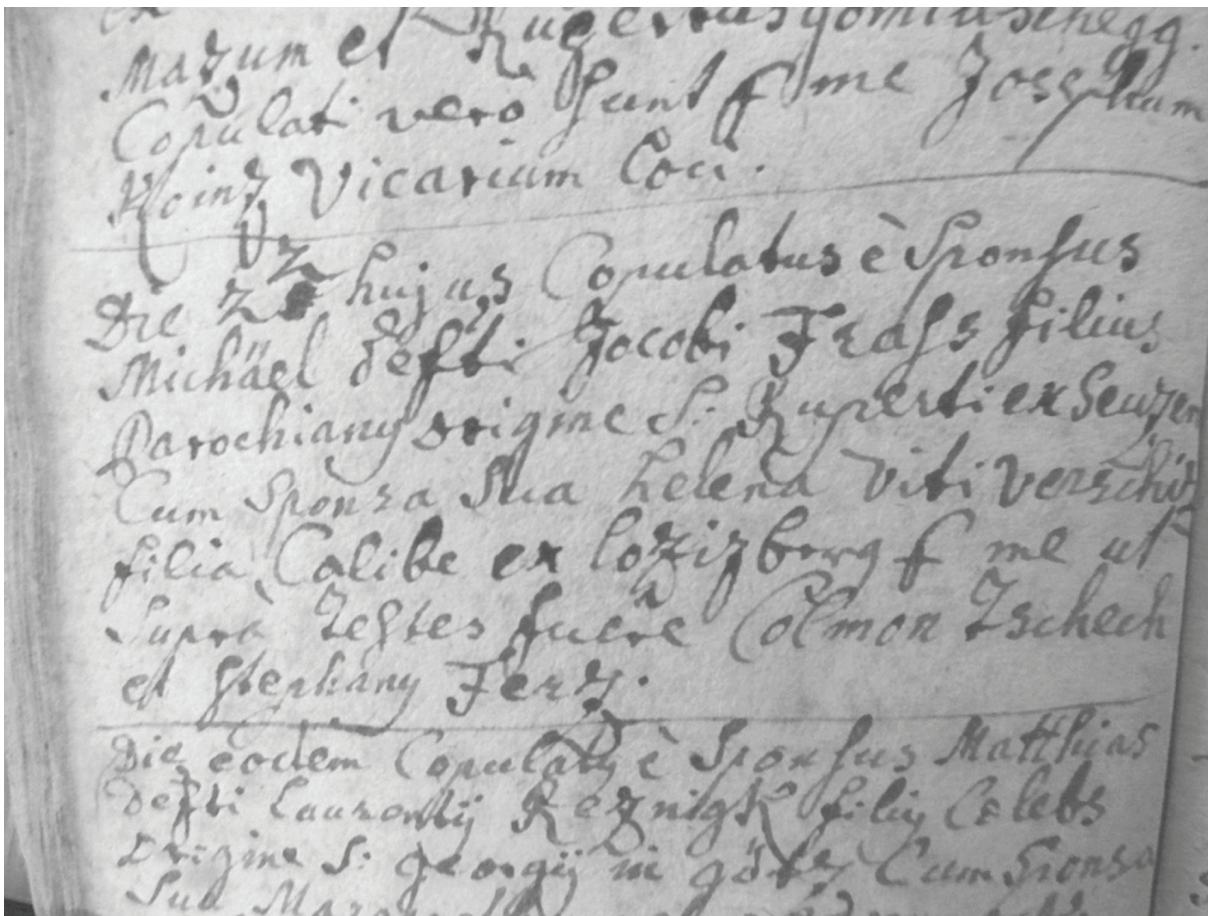 Mazum et Rupertus
Copulati vero sunt p me Josephum
Koinz Vicarium Loci.
Die 22 hujus Copulatus è Sponsus
Michäel defti Jacobi Frass filius
Parochiany origine S: Ruperti ex
Cum Sponsa Sua helena Viti Verschitz
filia Calibe ex p me ut
Supra Testes fuere Colmon Tschech
et Stephany Ferz.
Die eodem Copulaty è Sponsus Matthias
Defti Laurentij Reznigk filiy Celebs
Origine S: Georgij in Cum Sponsa
Sua